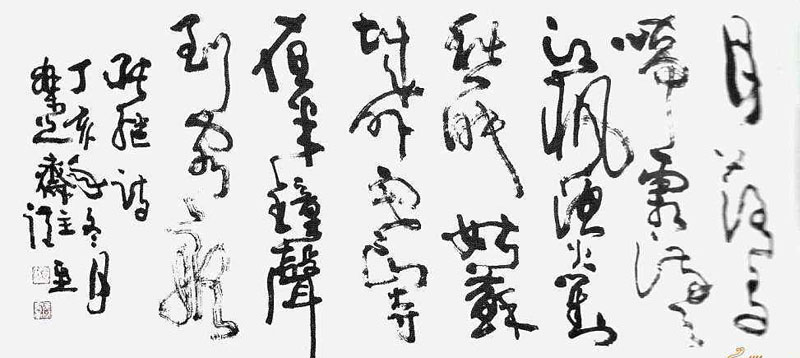 月落烏
啼霜滿天
江楓漁火對
愁眠姑蘇
城外寒山寺
夜半鐘聲
到客船
張繼詩
丁亥年冬月
齋主